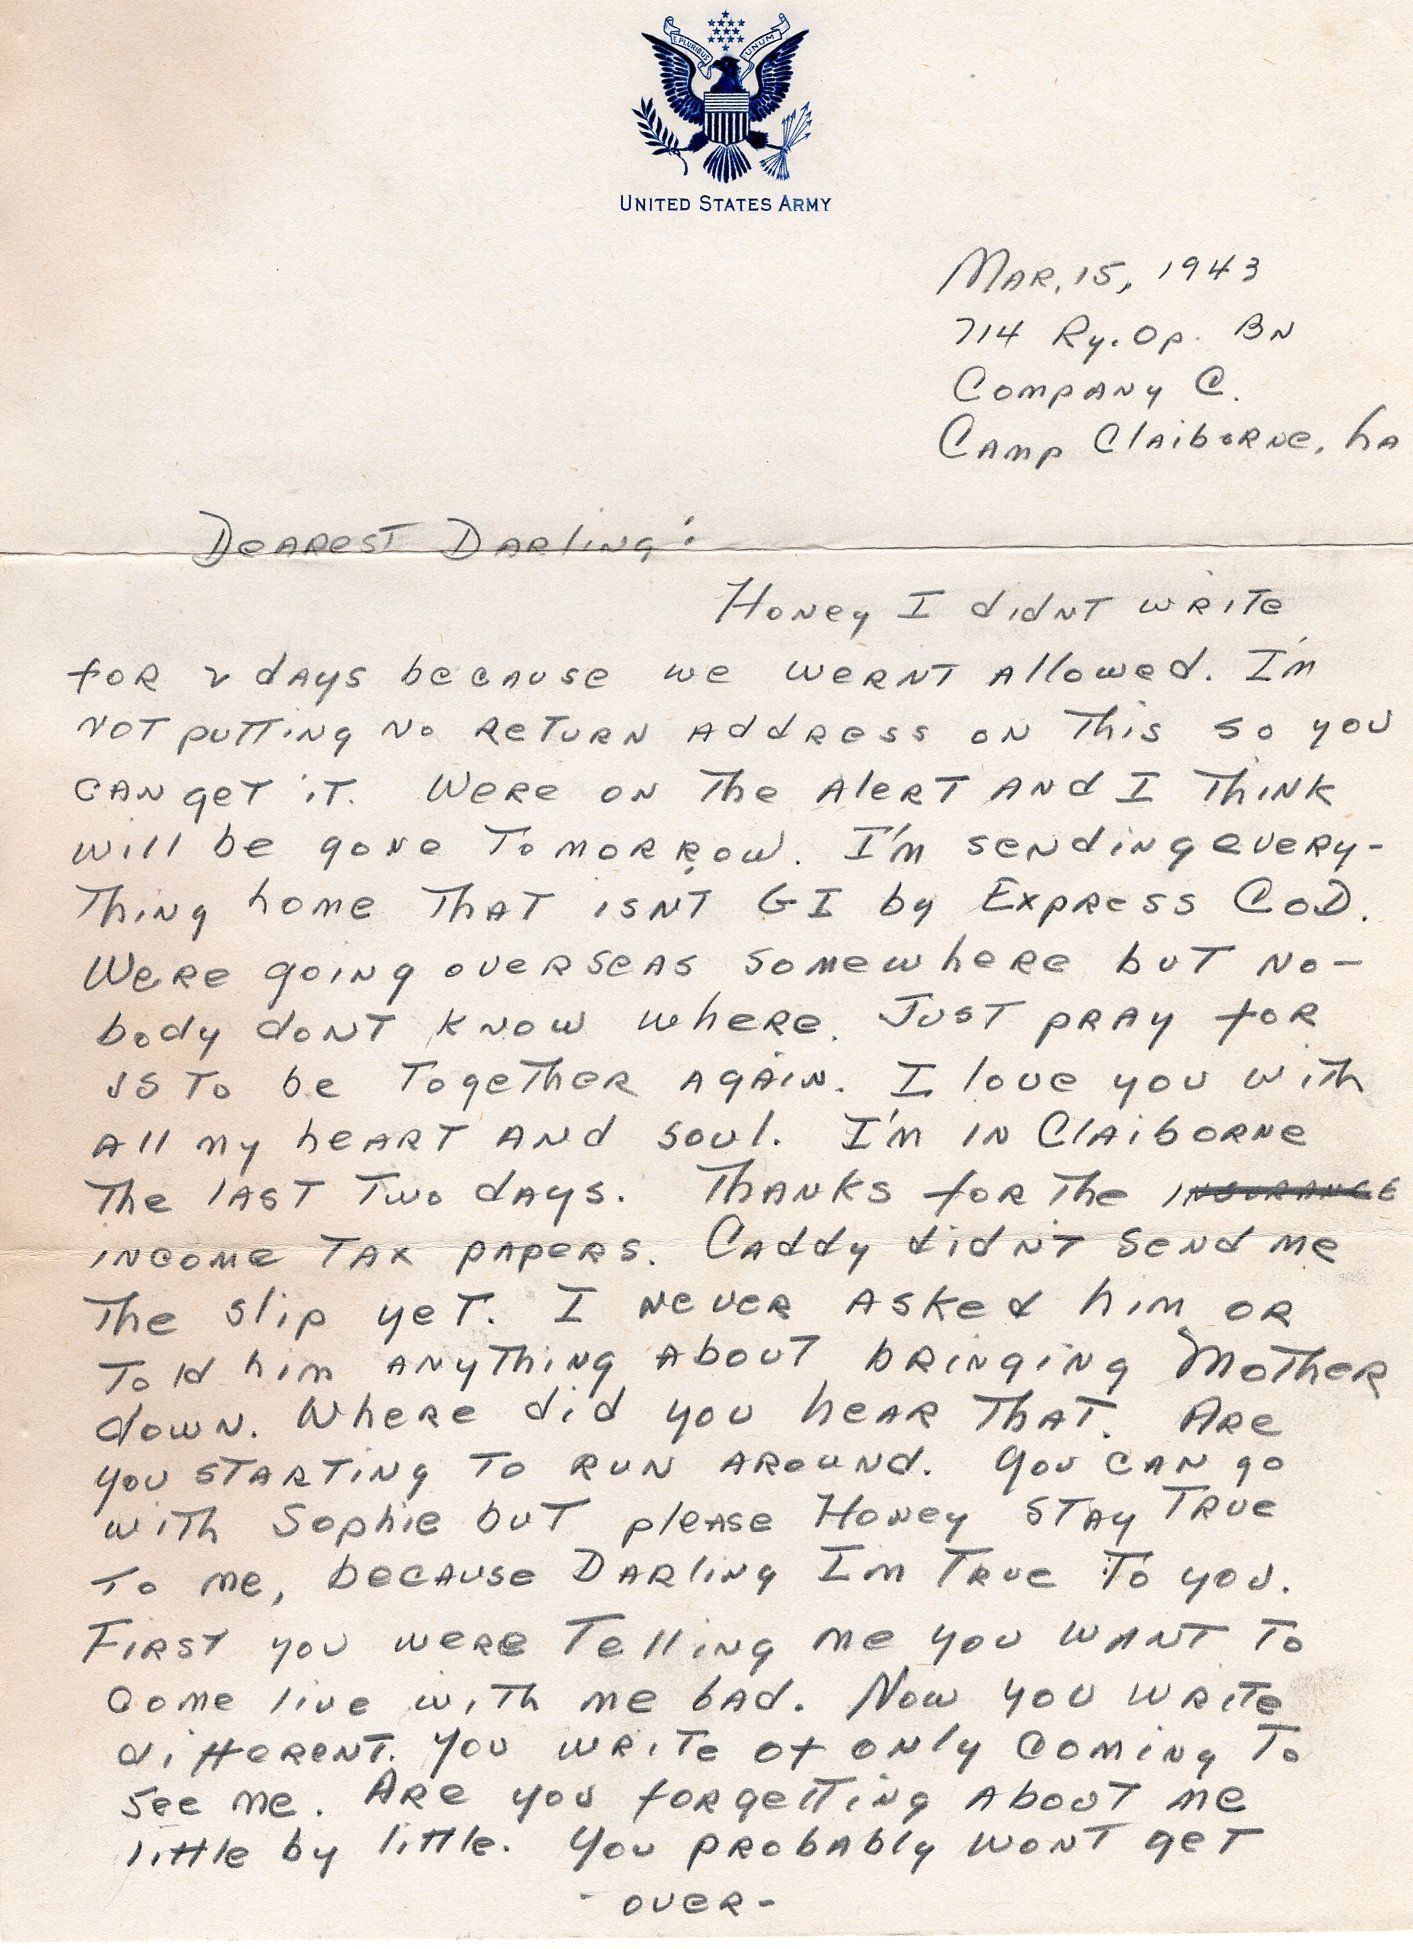 E PLURIBUS UNUM
UNITED STATES ARMY
Mar. 15, 1943
714 Ry. Op. Bn
Company C.
Camp Claiborne, La
Dearest Darling:
Honey I didnt write
for 2 days because we wernt allowed. I'm
not putting no return address on this so you
can get it. Were on the alert and I think
will be gone tomorrow. I'm sending every-
thing home that isn't GI by Express COD.
Were going overseas somewhere but no-
body dont know where. Just pray for
us to be together again. I love you with
all my heart and soul. I'm in Claiborne
the last two days. Thanks for the insurance
income tax papers. Caddy didn't send me
the slip yet. I never asked him or
told him anything about bringing Mother
down. Where did you hear that. Are
you starting to run around. You can go
with Sophie but please Honey stay true
to me, because Darling I'm true to you.
First you were telling me you want to
come live with me bad. Now you write
different. You write of only coming to
see me. Are you forgetting about me
little by little. You probably wont get
- over -